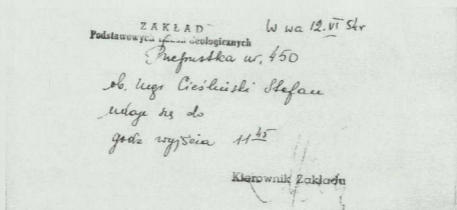 ZAKŁAD
W wa 12.VI 54r
Podstawowych Nauk Geologicznych
Przepustka nr. 450
ob. mgr Cieśliński Stefan
udaje się do
godz wyjścia 11 45
Kierownik Zakładu